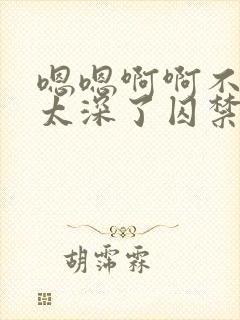 嗯嗯啊啊不
太深了囚禁
胡霈霖